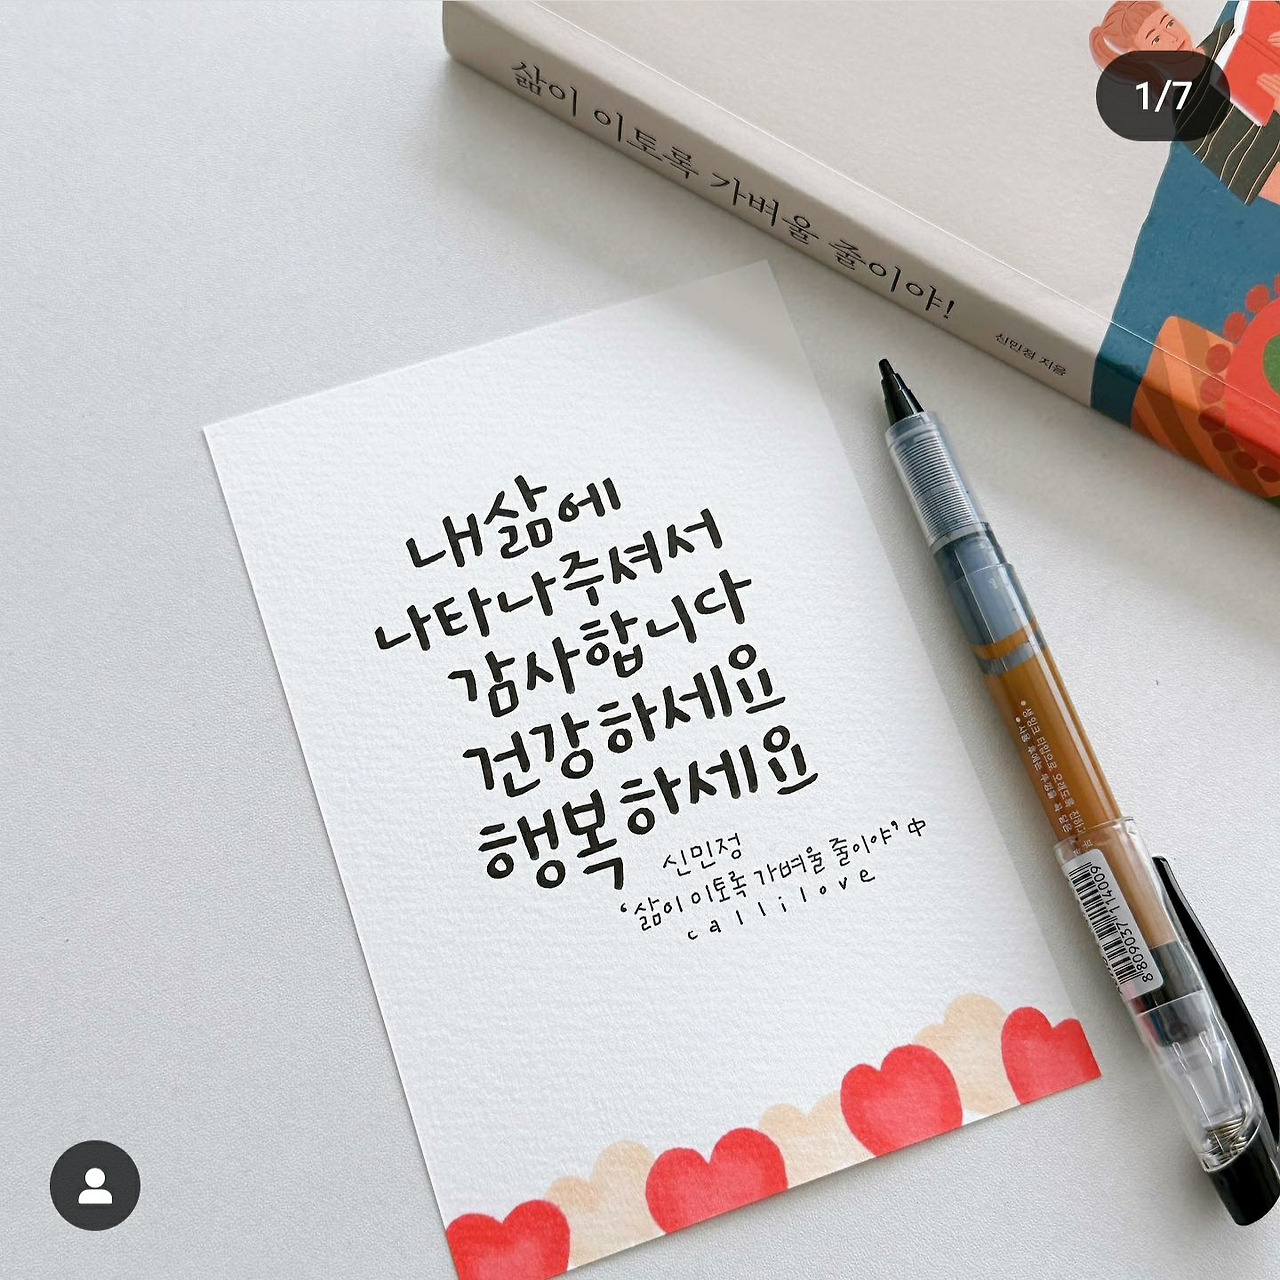 1/7
삶이 이토록 가벼울 줄이야!
신민정 지음
내 삶에
나타나주셔서
감사합니다
건강하세요
행복하세요
신민정
'삶이 이토록 가벼울 줄이야' 中
callilove
8809037114009